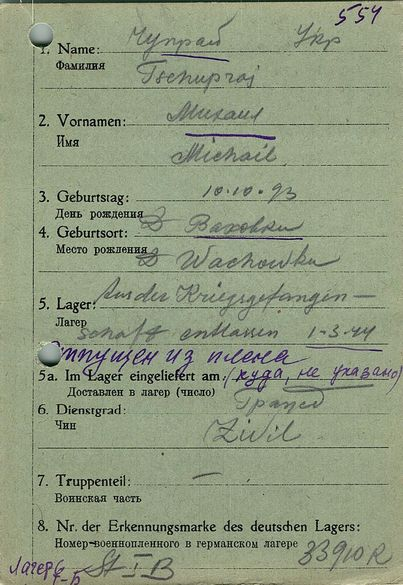 554
1. Name: Чупрай Укр
Фамилия Tschupraj
2. Vornamen: Михаил
Имя Michail
3. Geburtstag: 10.10.93
День рождения
4. Geburtsort: D Ваховки
Место рождения D Wachowku
5. Lager: Aus der Kriegsgefangen-
Лагерь schaft entlassen 1-3-44
Отпущен из плена
5a. Im Lager eingeliefert am: (куда, не указано)
Доставлен в лагерь (число)
6. Dienstgrad:
Чин Zivil
7. Truppenteil: —
Воинская часть
8. Nr. der Erkennungsmarke des deutschen Lagers:
Номер военнопленного в германском лагере 33910 R
St I B